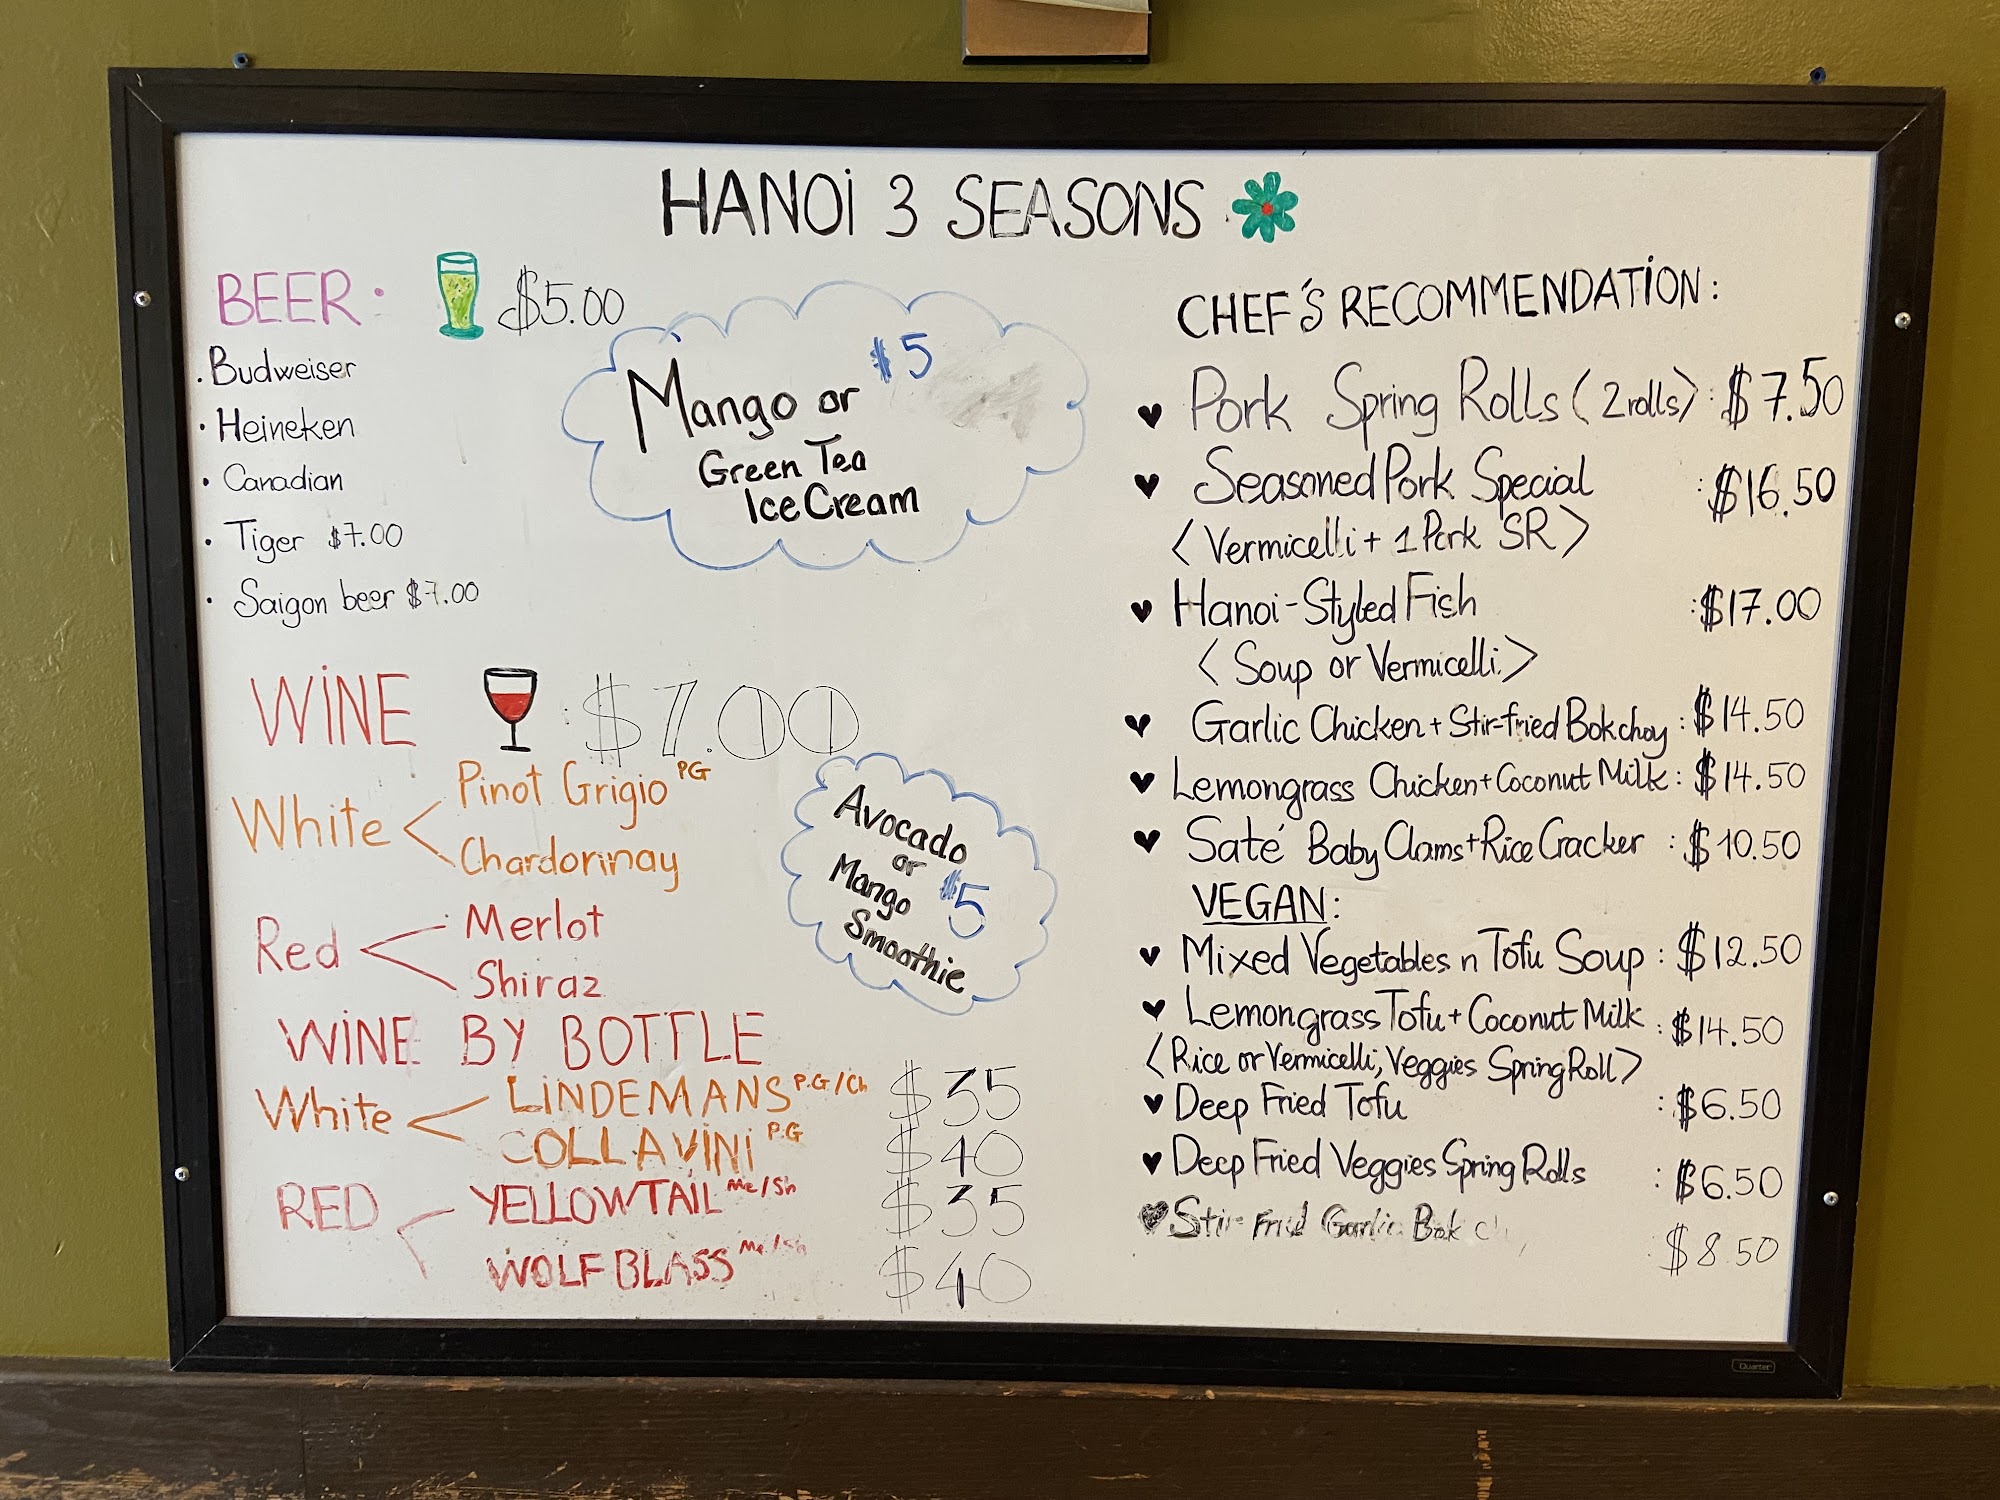 HANOi 3 SEASONS
BEER: $5.00
. Budweiser
• Heineken
• Canadian
• Tiger $7.00
• Saigon beer $7.00
Mango or $5
Green Tea
Ice Cream
WiNE : $7.00
White < Pinot Grigio PG
Chardonnay
Red < Merlot
Shiraz
Avocado
or
Mango $5
Smoothie
WiNE BY BOTTLE
White < LiNDEMANS P.G/Ch $35
COLLAViNi P.G $40
RED YELLOWTAIL Me/Sh $35
WOLF BLASS Me/Sh $40
CHEF'S RECOMMENDATiON:
♥ Pork Spring Rolls (2 rolls): $7.50
♥ Seasoned Pork Special : $16.50
< Vermicelli + 1 Pork SR >
♥ Hanoi-Styled Fish : $17.00
< Soup or Vermicelli >
♥ Garlic Chicken + Stir-fried Bokchoy : $14.50
♥ Lemongrass Chicken + Coconut Milk : $14.50
♥ Saté Baby Clams + Rice Cracker : $10.50
VEGAN:
♥ Mixed Vegetables n Tofu Soup : $12.50
♥ Lemongrass Tofu + Coconut Milk : $14.50
< Rice or Vermicelli, Veggies Spring Roll >
♥ Deep Fried Tofu : $6.50
♥ Deep Fried Veggies Spring Rolls : $6.50
♥ Stir-Fried Garlic Bok $8.50
Quartet